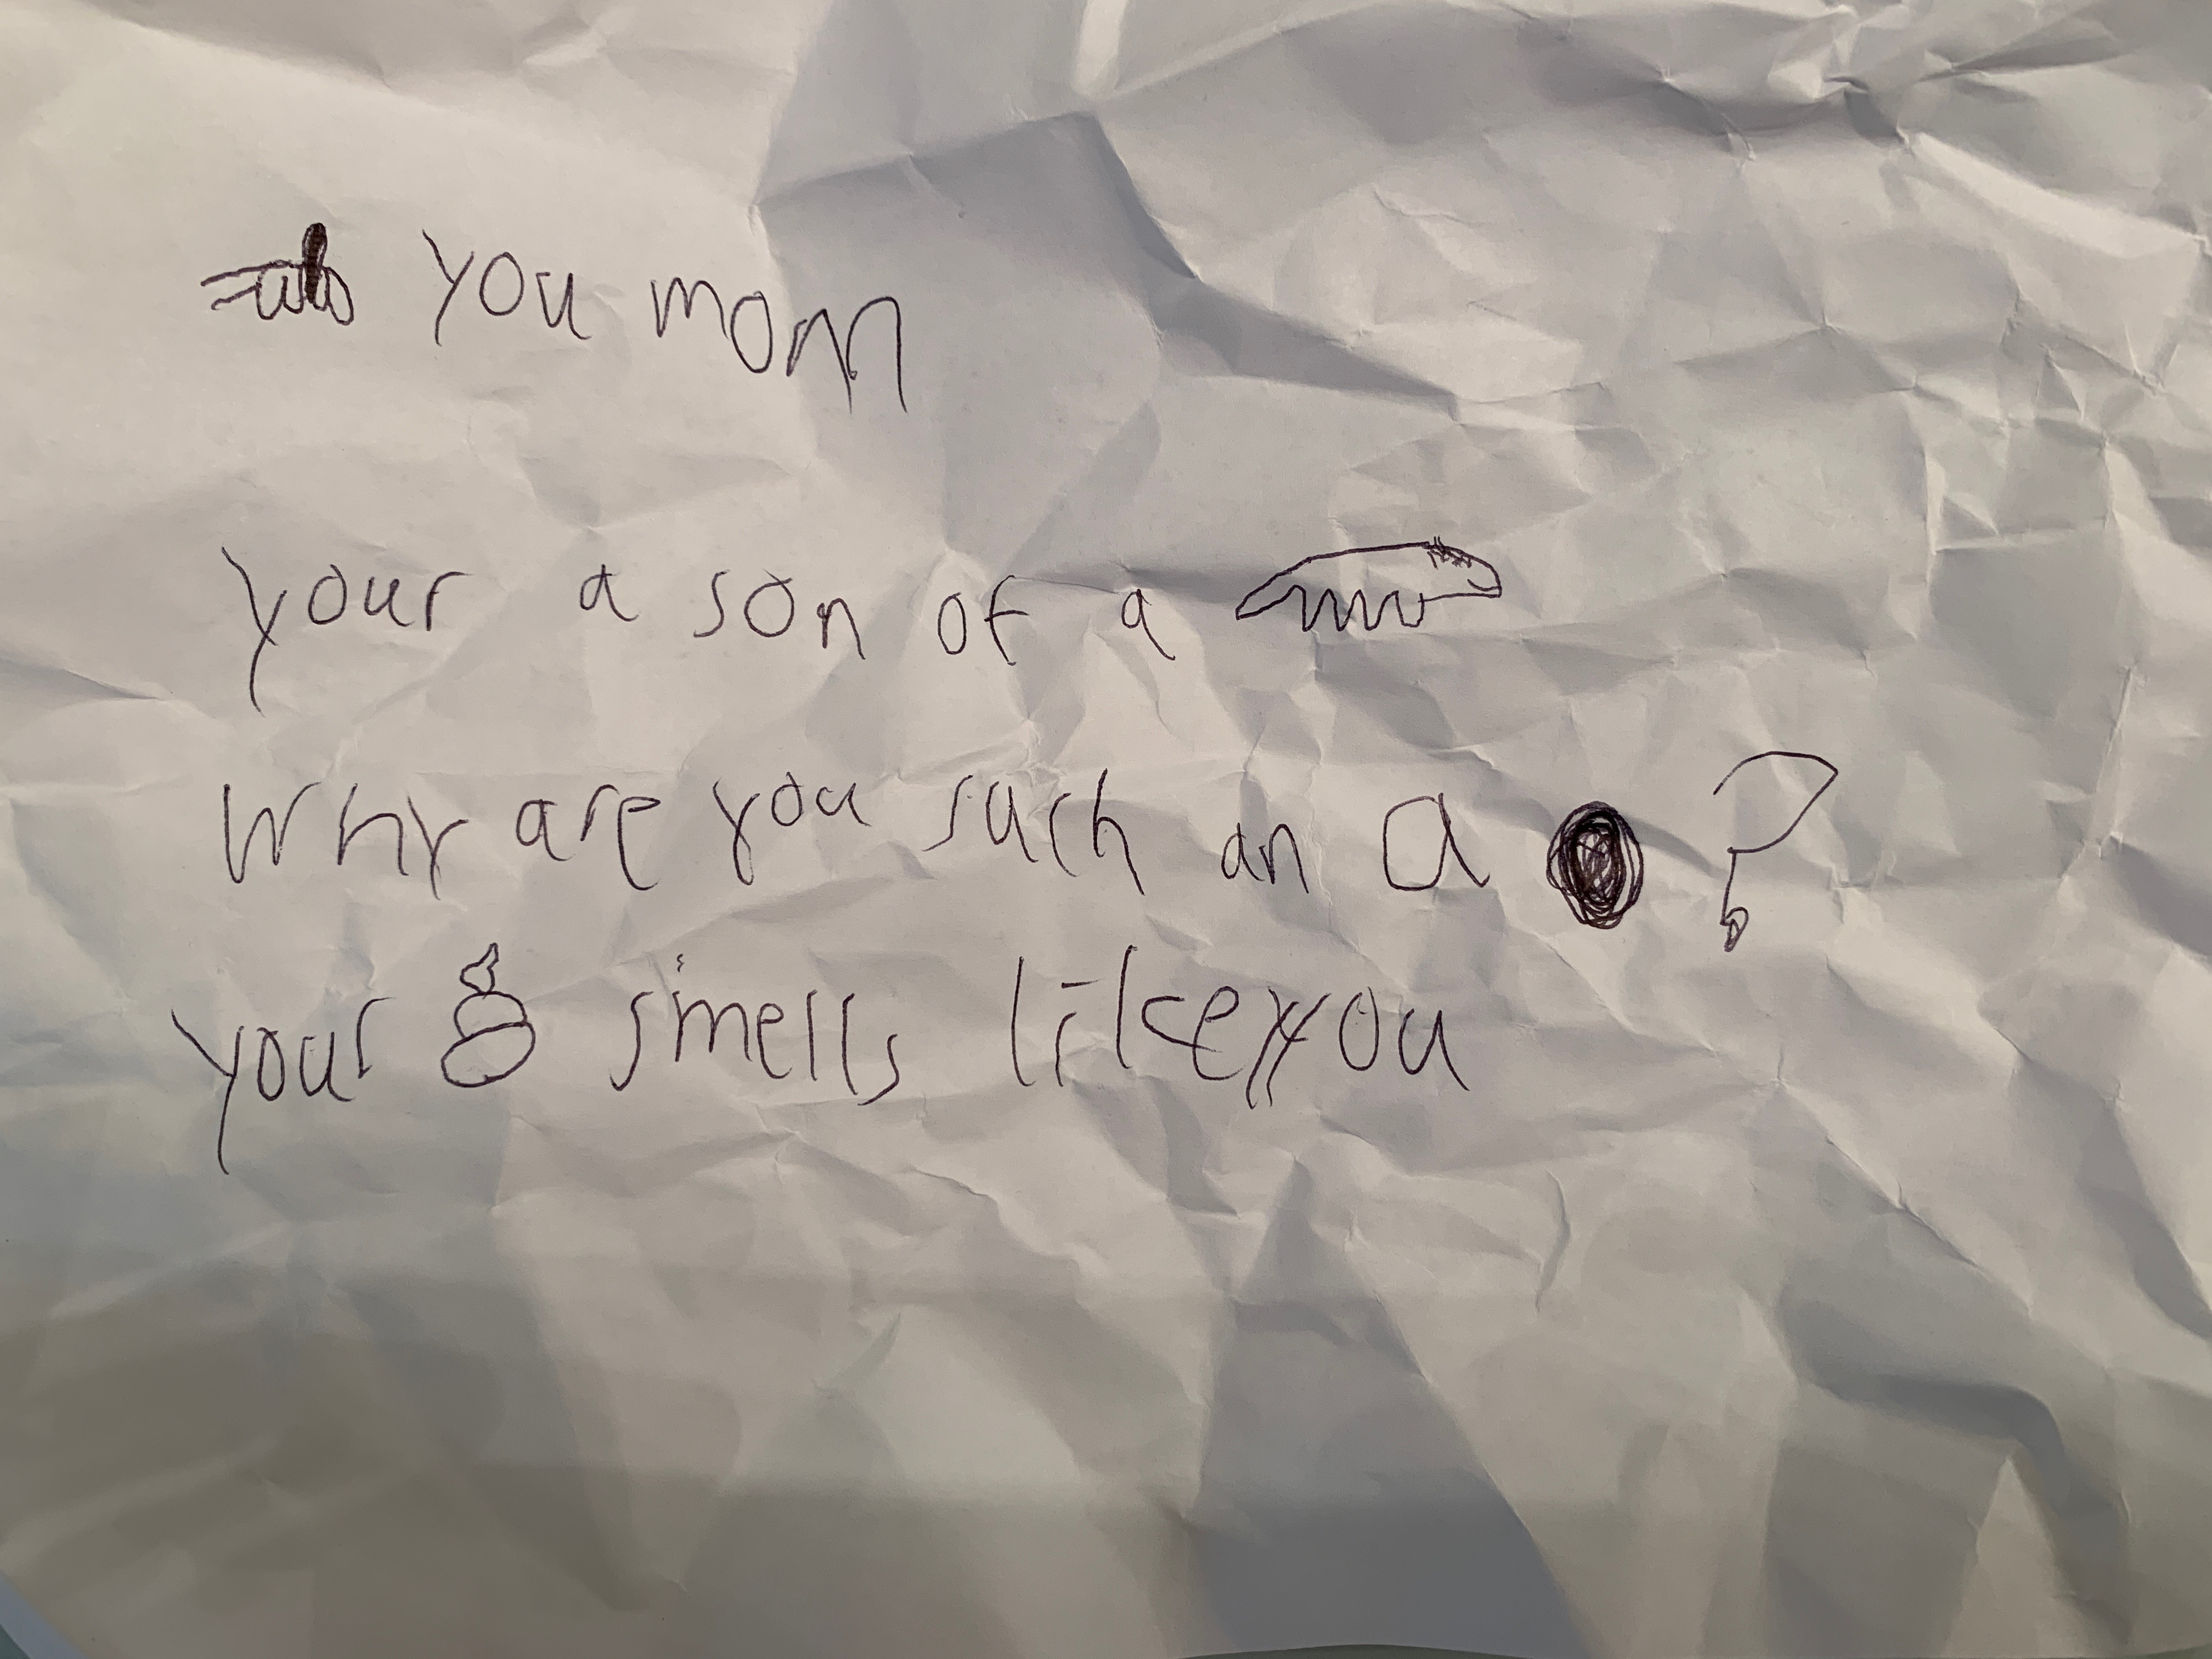 you mom
your a son of a
Why are you such an a ?
your smells like you